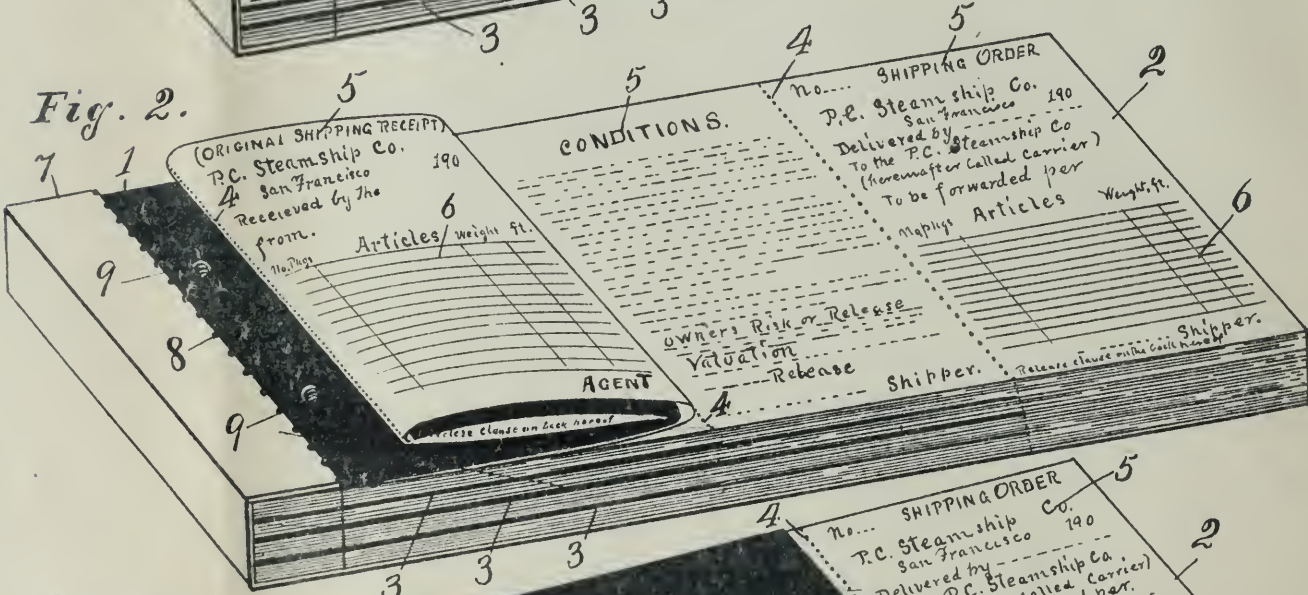 3 3 3
Fig. 2.
7 1 5
(ORIGINAL SHIPPING RECEIPT)
P.C. Steamship Co.
San Francisco 190
4
Receieved by the
from.
6
Articles Weight ft.
No. Pkgs
AGENT
clause on back hereof
9
8
9
5
CONDITIONS.
owners Risk or Release
Valuation
Release
Shipper.
4
4 5 2
SHIPPING ORDER
No....
P.C. Steam ship Co.
San Francisco 190
Delivered by
To the P.C. Steamship Co
(hereinafter Called Carrier)
To be forwarded per
Articles Weight, ft.
No pkgs
6
Shipper.
Release clause on the back hereof
3 3 3
4 5 2
No... SHIPPING ORDER
P.C. Steam ship Co.
San Francisco 190
Delivered by
P.C. Steamship Co,
Called Carrier)
per.